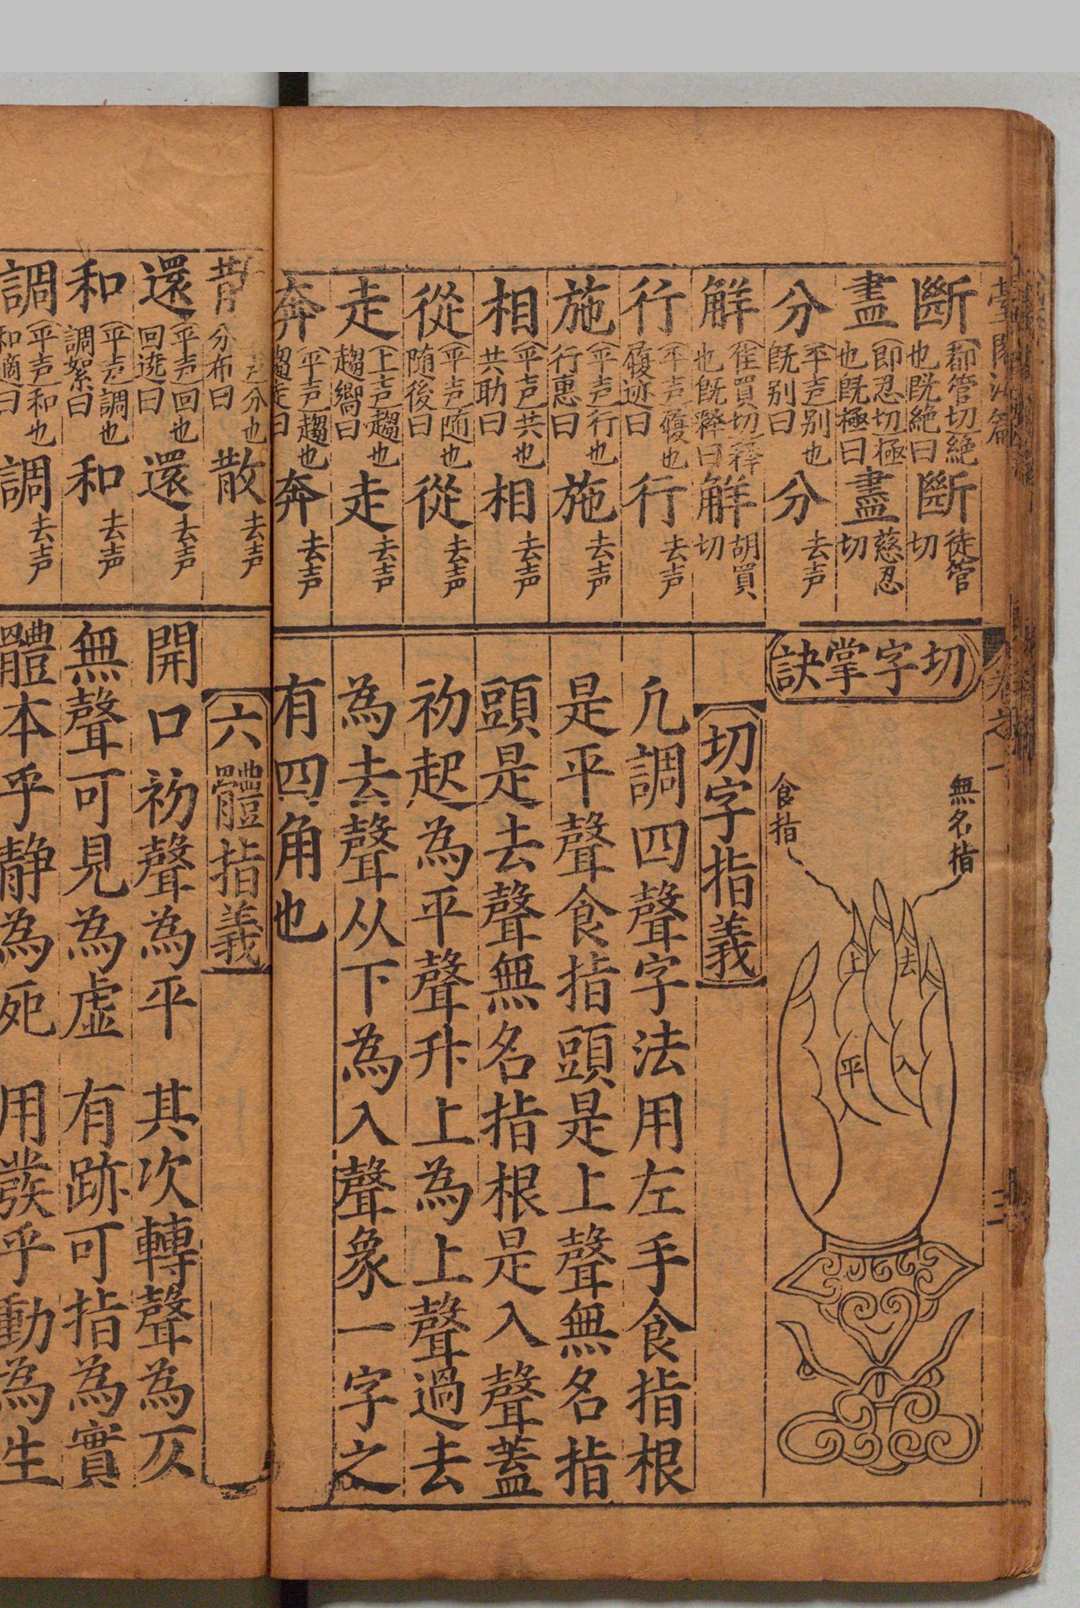 斷（都管切絕也既絕曰）斷徒管切
盡（即忍切極也既極曰）盡慈忍切
分（平声別也既别曰）分去声
解（隹買切釋也既釋曰）解胡買切
行（平声履也履迹曰）行去声
施（平声行也行惠曰）施去声
相（平声共也共助曰）相去声
從（平声随也随後曰）從去声
走（上声趨也趨嚮曰）走去声
奔（平声趨也趨走曰）奔去声
切字掌訣
無名指
食指
上
去
平
入
切字指義
凢調四聲字法用左手食指根
是平聲食指頭是上聲無名指
頭是去聲無名指根是入聲蓋
初起為平聲升上為上聲過去
為去聲从下為入聲象一字之
有四角也
散 分也分布曰 散去声
還（平声回也回遶曰）還去声
和（平声調也調絮曰）和去声
調（平声和也和適曰）調去声
六體指義
開口初聲為平　其次轉聲為仄
無聲可見為虚　有跡可指為實
體本乎静為死　用發乎動為生